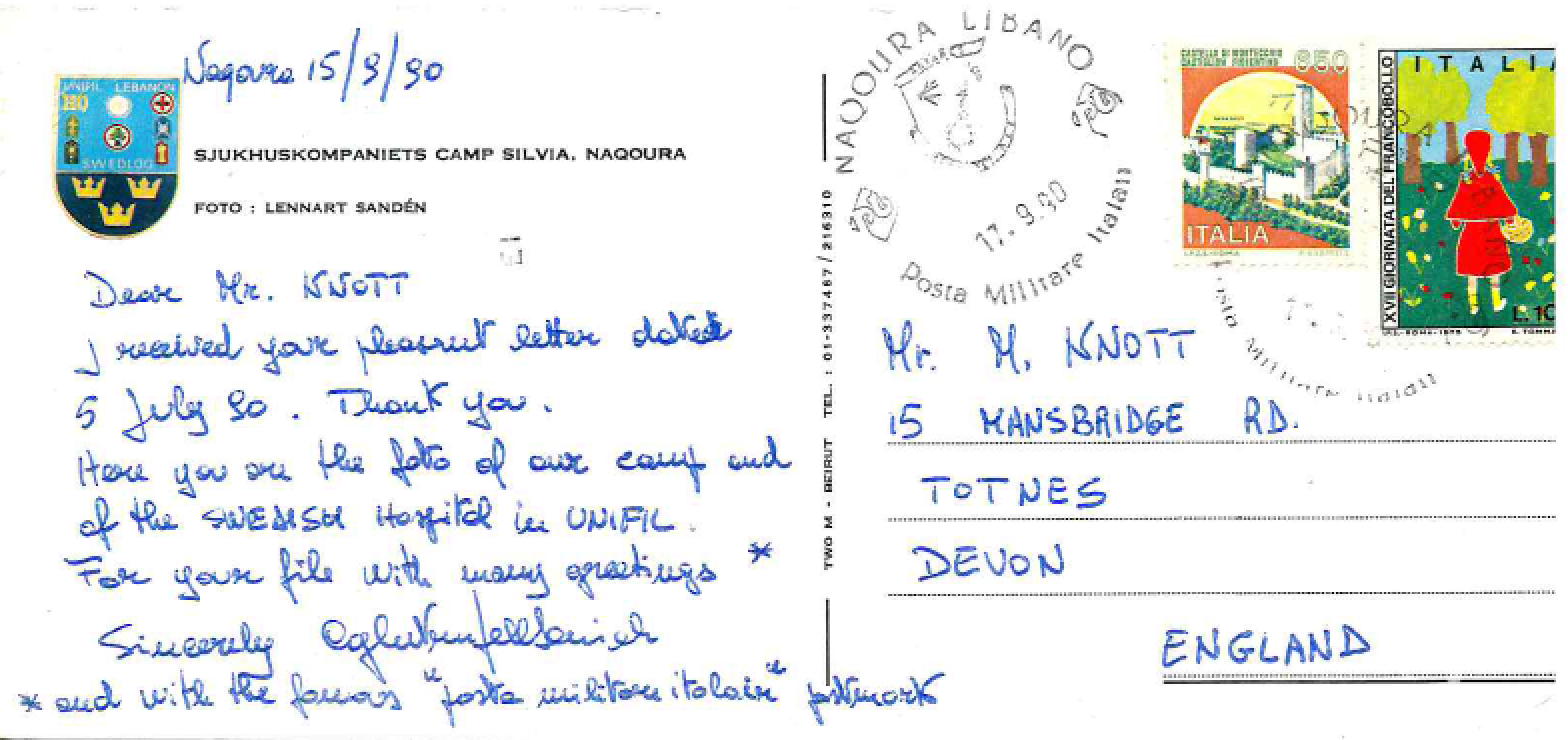 Naqoura 15/9/90
UNIFIL LEBANON
HQ
SWEDLOG
SJUKHUSKOMPANIETS CAMP SILVIA, NAQOURA
FOTO : LENNART SANDÉN
Dear Mr. KNOTT
I received your pleasant letter dated
5 July 90. Thank you.
Here you are the foto of our camp and
of the SWEDISH Hospital in UNIFIL.
For your file with many greetings *
Sincerely
* and with the famous "posta militare italain" postmark
TWO M - BEIRUT TEL. : 01-337467 / 216310
NAQOURA LIBANO
17.9.90
Posta Militare Italain
CASTELLO DI MONTECCHIO
CASTIGLION FIORENTINO
650
ITALIA
ITALIA
XVII GIORNATA DEL FRANCOBOLLO
L. 10
Posta Militare Italain
Mr. M. KNOTT
15 MANSBRIDGE RD.
TOTNES
DEVON
ENGLAND